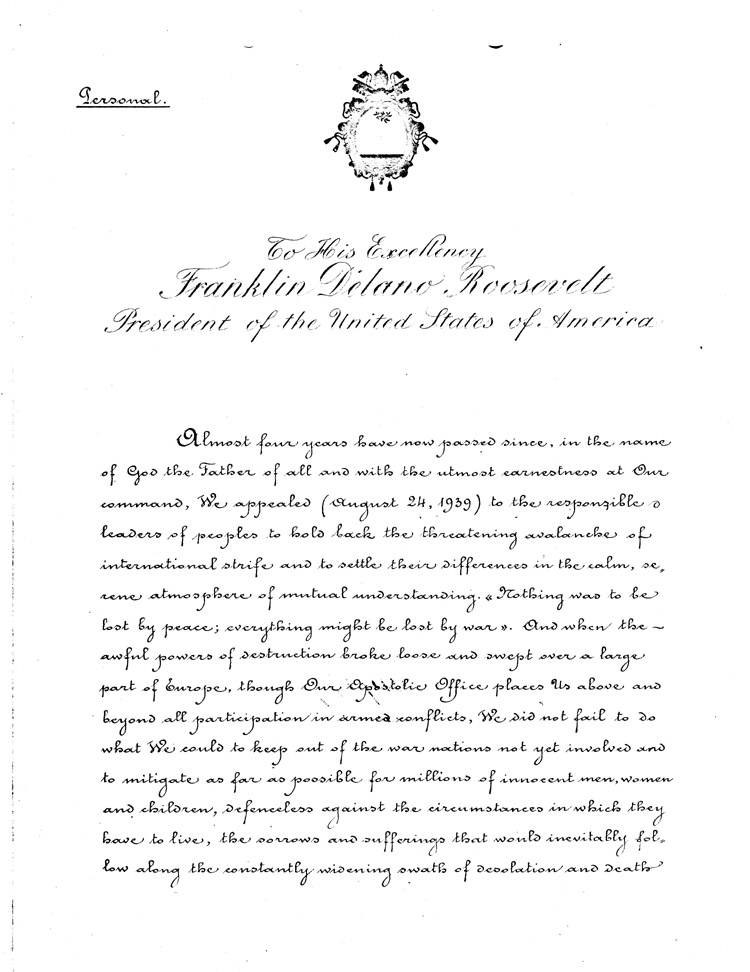 Personal.
To His Excellency
Franklin Delano Roosevelt
President of the United States of America
Almost four years have now passed since, in the name
of God the Father of all and with the utmost earnestness at Our
command, We appealed (August 24, 1939) to the responsible
leaders of peoples to hold back the threatening avalanche of
international strife and to settle their differences in the calm, se„
rene atmosphere of mutual understanding. «Nothing was to be
lost by peace; everything might be lost by war». And when the –
awful powers of destruction broke loose and swept over a large
part of Europe, though Our Apostolic Office places Us above and
beyond all participation in armed conflicts, We did not fail to do
what We could to keep out of the war nations not yet involved and
to mitigate as far as possible for millions of innocent men, women
and children, defenceless against the circumstances in which they
have to live, the sorrows and sufferings that would inevitably fol„
low along the constantly widening swath of desolation and death